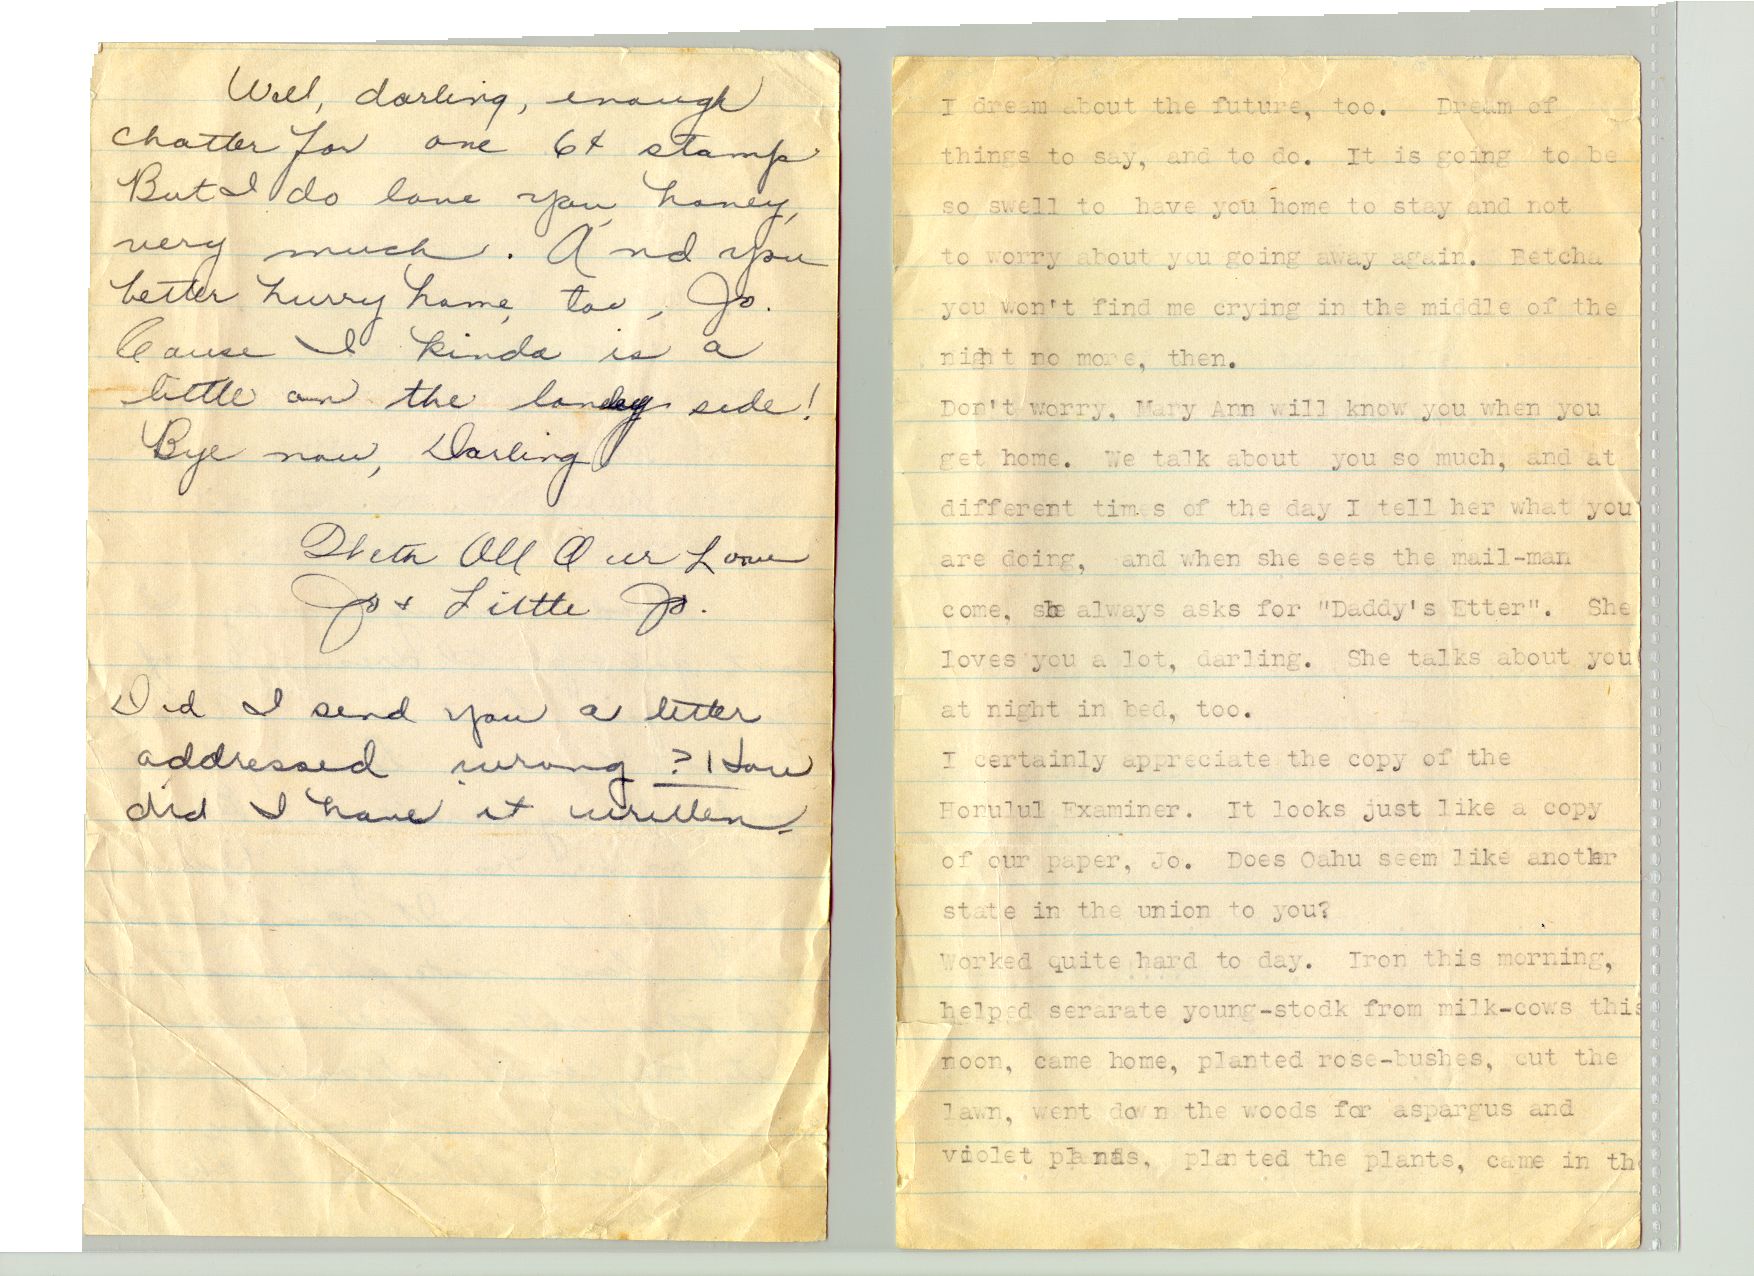 Well, darling, enough
chatter for one 6¢ stamp
But I do love you, honey,
very much. And you
better hurry home, too, Jo.
Cause I kinda is a
little on the loneley side!
Bye now, Darling
With All Our Love
Jo & Little Jo.
Did I send you a letter
addressed wrong? How
did I have it written.
I dream about the future, too. Dream of
things to say, and to do. It is going to be
so swell to have you home to stay and not
to worry about you going away again. Betcha
you won't find me crying in the middle of the
night no more, then.
Don't worry, Mary Ann will know you when you
get home. We talk about you so much, and at
different times of the day I tell her what you
are doing, and when she sees the mail-man
come, she always asks for "Daddy's Etter". She
loves you a lot, darling. She talks about you
at night in bed, too.
I certainly appreciate the copy of the
Honulul Examiner. It looks just like a copy
of our paper, Jo. Does Oahu seem like another
state in the union to you?
Worked quite hard to day. Iron this morning,
helped serarate young-stodk from milk-cows this
noon, came home, planted rose-bushes, cut the
lawn, went down the woods for aspargus and
violet plants, planted the plants, came in the